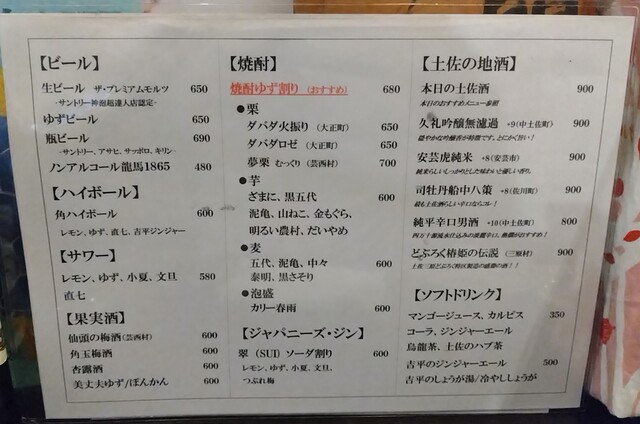 【ビール】
生ビール ザ・プレミアムモルツ 650
-サントリー神泡超達人店認定-
ゆずビール 650
瓶ビール 690
-サントリー、アサヒ、サッポロ、キリン-
ノンアルコール龍馬1865 480
【ハイボール】
角ハイボール 600
レモン、ゆず、直七、吉平ジンジャー
【サワー】
レモン、ゆず、小夏、文旦 580
直七
【果実酒】
仙頭の梅酒(芸西村) 600
角玉梅酒 600
杏露酒 600
美丈夫ゆず/ぽんかん 600
【焼酎】
焼酎ゆず割り (おすすめ) 680
●栗
ダバダ火振り (大正町) 650
ダバダロゼ (大正町) 650
夢栗 むっくり (芸西村) 700
●芋
ざまに、黒五代 600
泥亀、山ねこ、金もぐら、
明るい農村、だいやめ
●麦
五代、泥亀、中々 600
泰明、黒さそり
●泡盛
カリー春雨 600
【ジャパニーズ・ジン】
翠 (SUI) ソーダ割り 600
レモン、ゆず、小夏、文旦、
つぶれ梅
【土佐の地酒】
本日の土佐酒 900
本日のおすすめメニュー参照
久礼吟醸無濾過 +9(中土佐町) 900
穏やかな吟醸香が特徴です。とにかく旨い!
安芸虎純米 +8(安芸市) 900
純米らしいしっかりとした味わいと優しい香り。
司牡丹船中八策 +8(佐川町) 900
最も土佐酒らしい辛口ならコレ!
純平辛口男酒 +10(中土佐町) 800
四万十源流水仕込みの淡麗辛口。熱燗がおすすめ!
どぶろく椿姫の伝説 (三原村) 900
土佐三原どぶろく特区製造の感動の酒!!
【ソフトドリンク】
マンゴージュース、カルピス 350
コーラ、ジンジャーエール
烏龍茶、土佐のハブ茶
吉平のジンジャーエール 500
吉平のしょうが湯/冷やししょうが